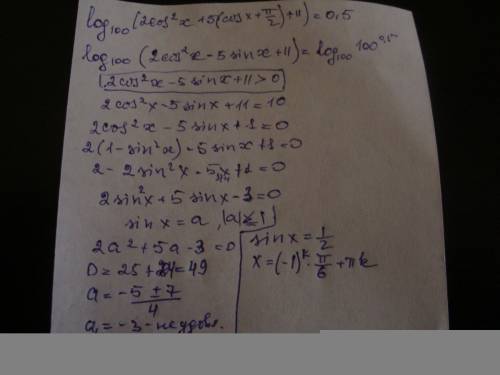 log₁₀₀(2cos²x+5(cosx+π/2)+11)=0,5
log₁₀₀(2cos²x-5sinx+11)=log₁₀₀100^0,5
2cos²x-5sinx+11>0
2cos²x-5sinx+11=10
2cos²x-5sinx+1=0
2(1-sin²x)-5sinx+1=0
2-2sin²x-5sinx+1=0
2sin²x+5sinx-3=0
sinx=a, |a|≤1
2a²+5a-3=0
D=25+24=49
a=(-5±7)/4
a₁=-3-неудовл.
sinx=1/2
x=(-1)^k·π/6+πk